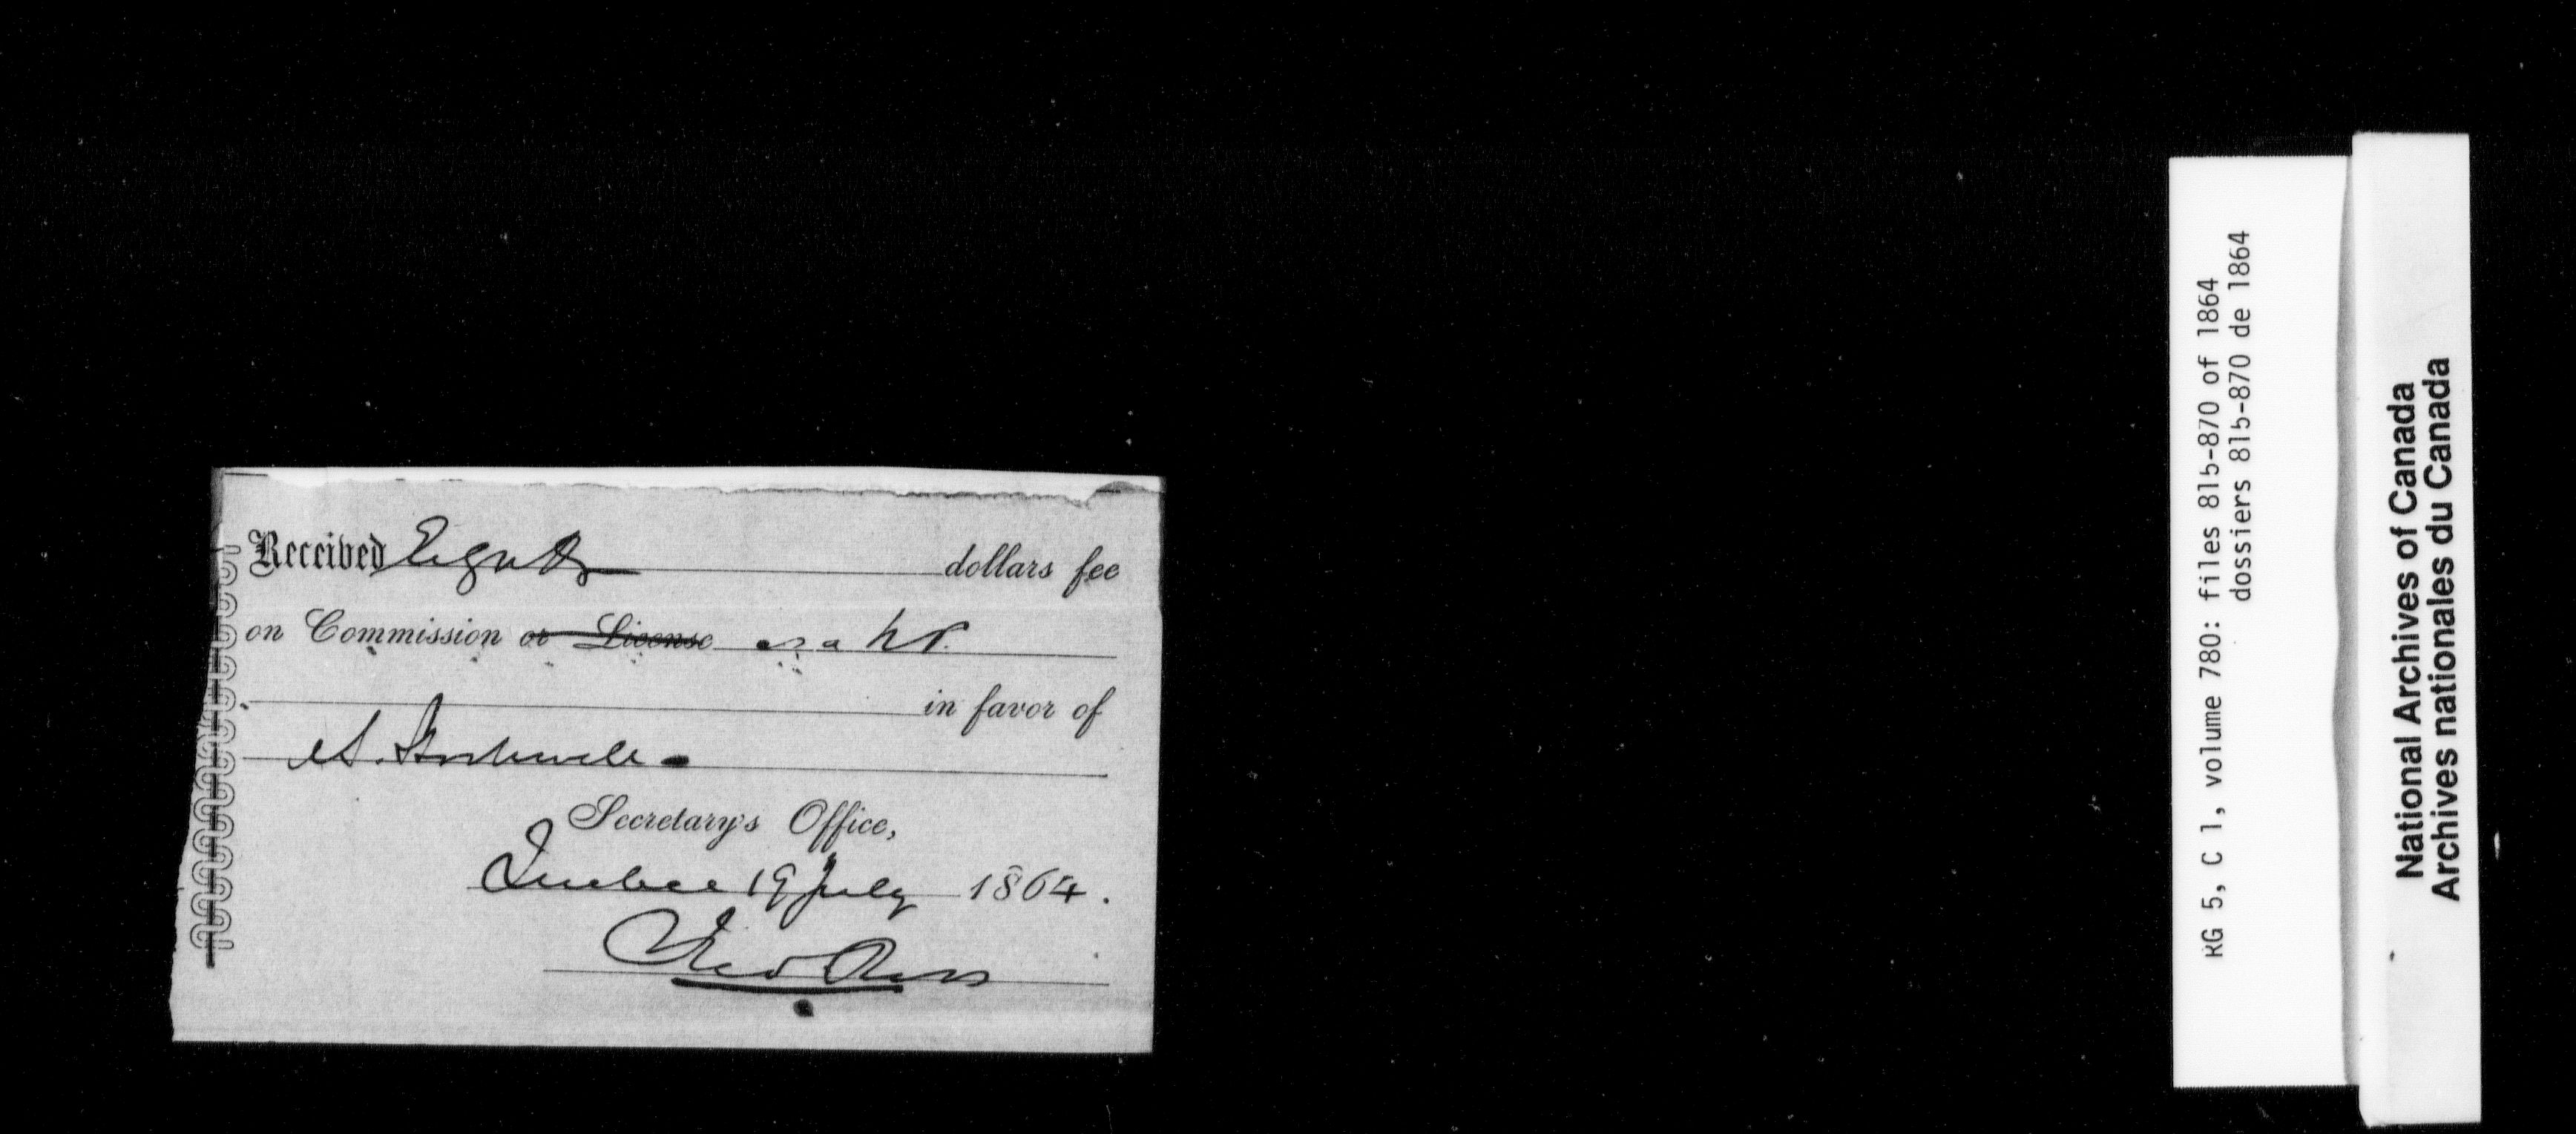 Received Eight dollars fee
on Commission or License as a N.P.
in favor of
Stockwell
Secretary's Office,
Quebec 19 July 1864.
Theo Ross
RG 5, C 1, volume 780: files 815-870 of 1864
dossiers 815-870 de 1864
National Archives of Canada
Archives nationales du Canada